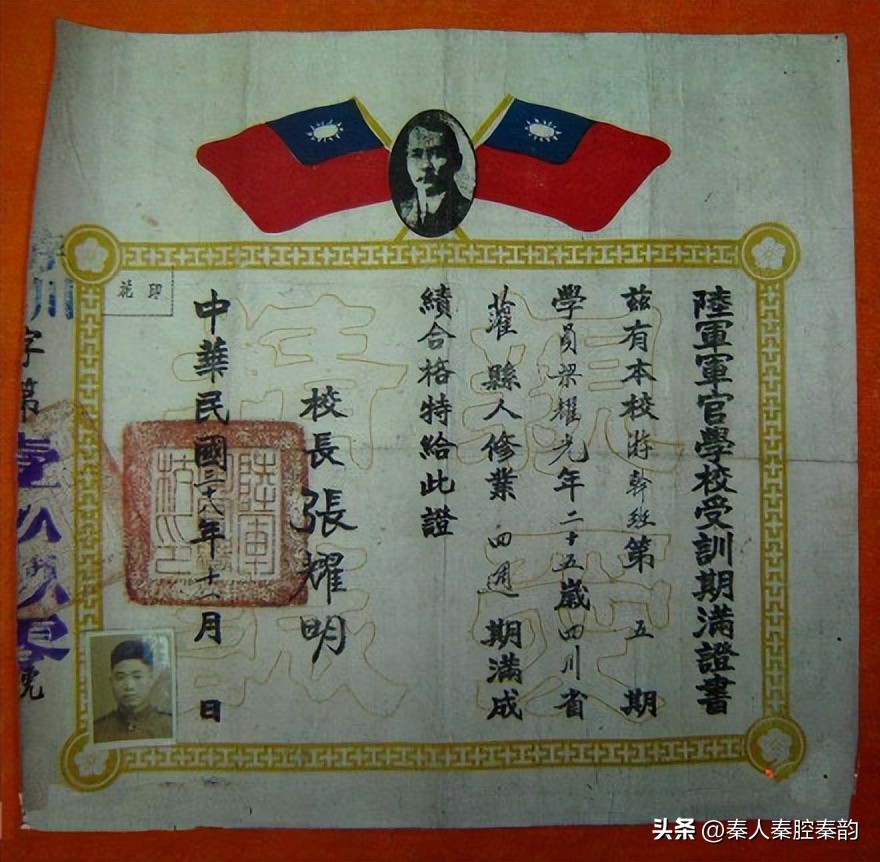 陸軍軍官學校受訓期滿證書
茲有本校游幹班第五期
學員梁耀光年二十五歲四川省
灌縣人修業四週期滿成
績合格特給此證
校長張耀明
中華民國三十八年十一月日
印花
字第
號
親愛精誠
头条 @秦人秦腔秦韵